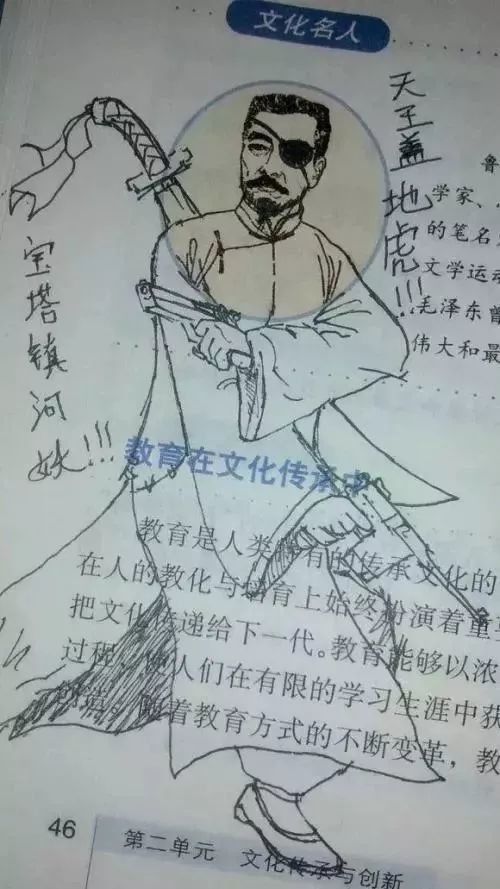 文化名人
天王盖地虎!!!
宝塔镇河妖!!!
鲁
学家、
的笔名
文学运动
毛泽东曾
伟大和最
教育在文化传承中
教育是人类特有的传承文化的
在人的教化与培育上始终扮演着重要
把文化传递给下一代。教育能够以浓
过程,使人们在有限的学习生涯中获
着教育方式的不断变革，教
46
第二单元 文化传承与创新